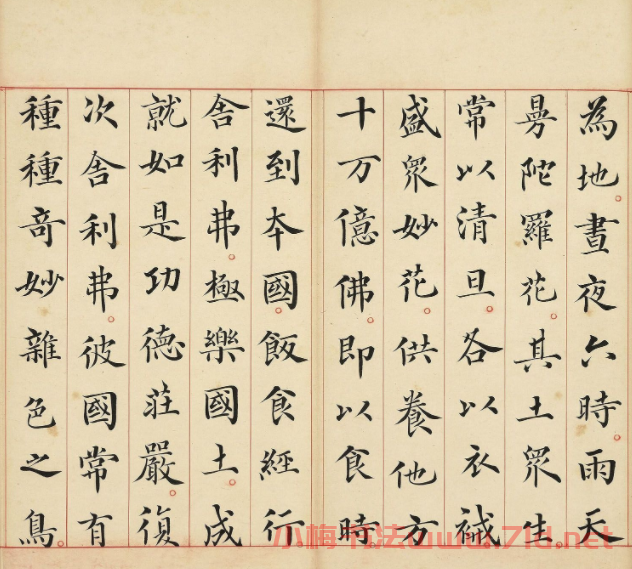 為地晝夜六時雨天
曼陀羅花其土眾生
常以清旦各以衣祴
盛眾妙花供養他方
十万億佛即以食時
還到本國飯食經行
舎利弗極樂國土成
就如是功德莊嚴復
次舎利弗彼國常有
種種奇妙雜色之鳥
小梅书法www.71d.net